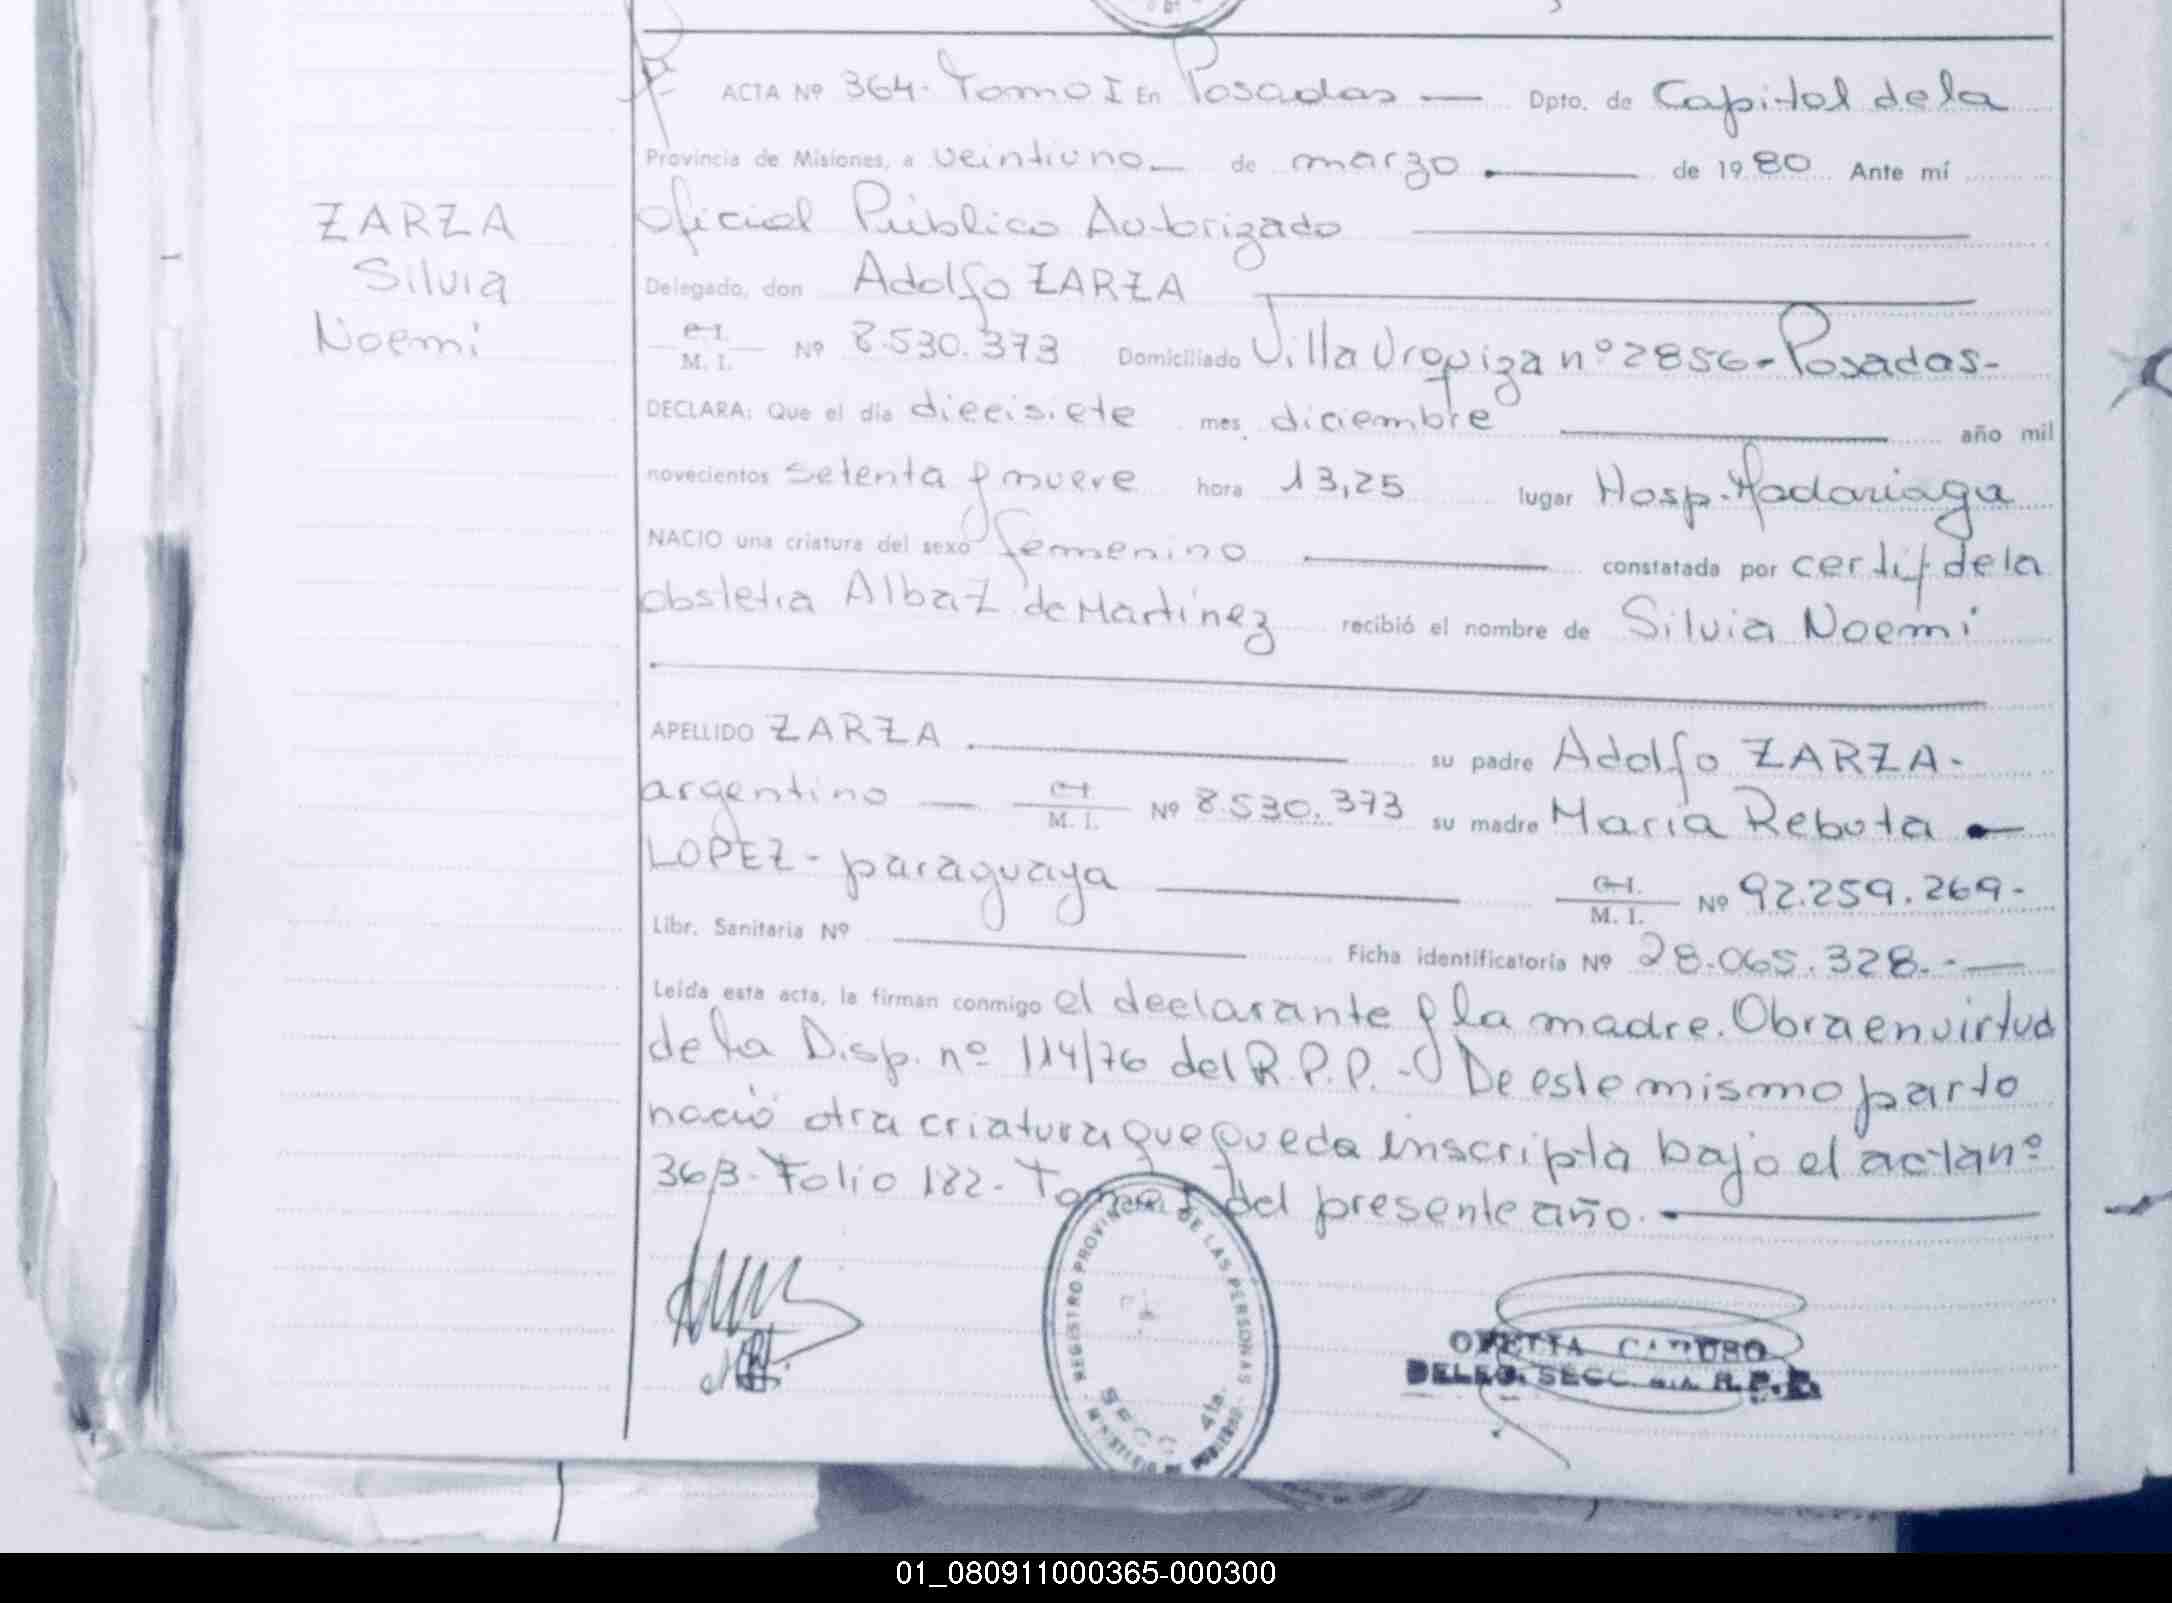 ACTA Nº 364. Tomo I En Posadas — Dpto. de Capital de la
Provincia de Misiones, a veintiuno — de marzo — de 1980 Ante mí
Oficial Público Autorizado
ZARZA
Silvia
Noemi
Delegado, don Adolfo ZARZA
C.I. / M. I. Nº 8.530.373 Domiciliado Villa Urquiza nº 2856 - Posadas -
DECLARA: Que el día diecisiete mes diciembre año mil
novecientos setenta y nueve hora 13,25 lugar Hosp. Madariaga
NACIO una criatura del sexo femenino constatada por certif de la
obstetra Alba Z. de Martínez recibió el nombre de Silvia Noemi
APELLIDO ZARZA su padre Adolfo ZARZA -
argentino — C.I. / M. I. Nº 8.530.373 su madre María Rebuta —
LOPEZ - paraguaya C.I. / M. I. Nº 92.259.269 -
Libr. Sanitaria Nº Ficha identificatoria Nº 28.065.328. - —
Leída esta acta, la firman conmigo el declarante y la madre. Obra en virtud
de la Disp. nº 114/76 del R.P.P. - De este mismo parto
nació otra criatura que queda inscripta bajo el acta nº
363 - Folio 182 - Tomo I del presente año. —
REGISTRO PROVINCIAL DE LAS PERSONAS
SECC 4ta.
CARUSO
DELEG. SECC. 4ta. R.P.P.
01_080911000365-000300